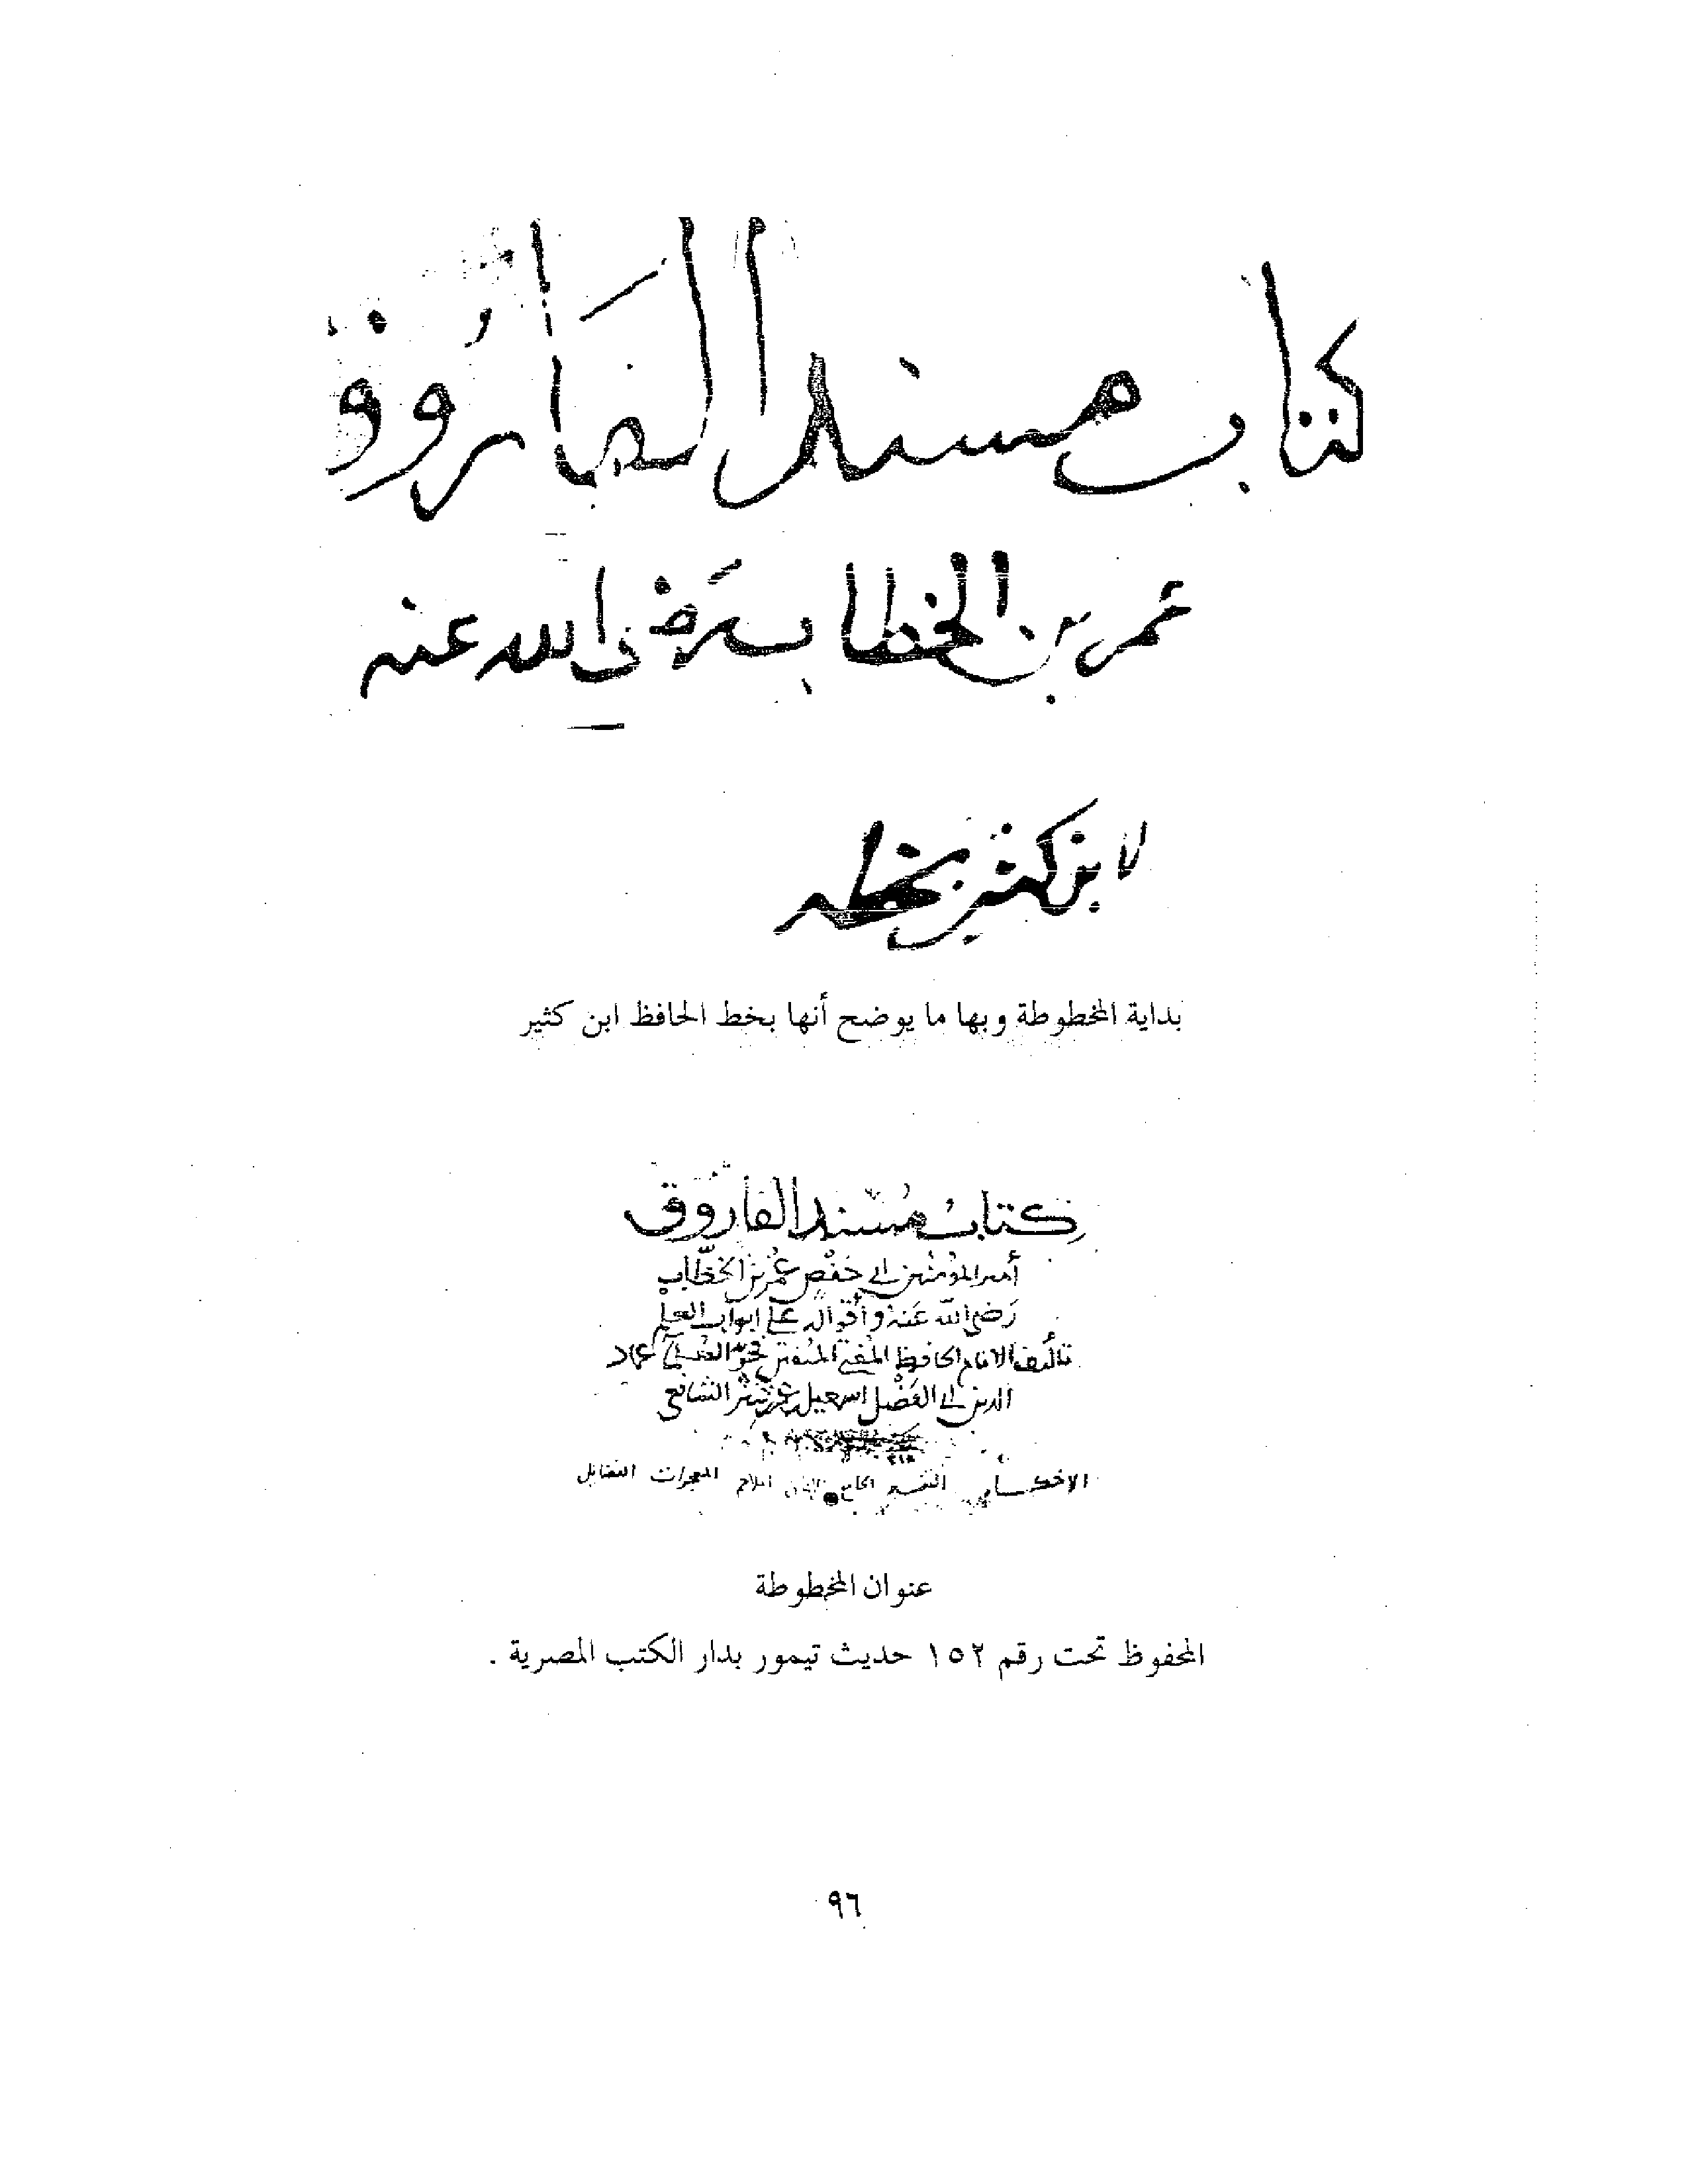 كتاب مسند الفاروق
عمر بن الخطاب رضي الله عنه
لابن كثير بخطه
بداية المخطوطة وبها ما يوضح أنها بخط الحافظ ابن كثير
كتاب مُسند الفاروق
أمير المؤمنين أبي حفص عمر بن الخطّاب
رَضي الله عَنهُ وأقواله على ابواب العلم
تأليف الامام الحافظ المفتي المفسّر عماد
الدين أبي الفَضْل اسمعيل بن كثير الشافعي
عنوان المخطوطة
المحفوظ تحت رقم ١٥٢ حديث تيمور بدار الكتب المصرية .
٩٦